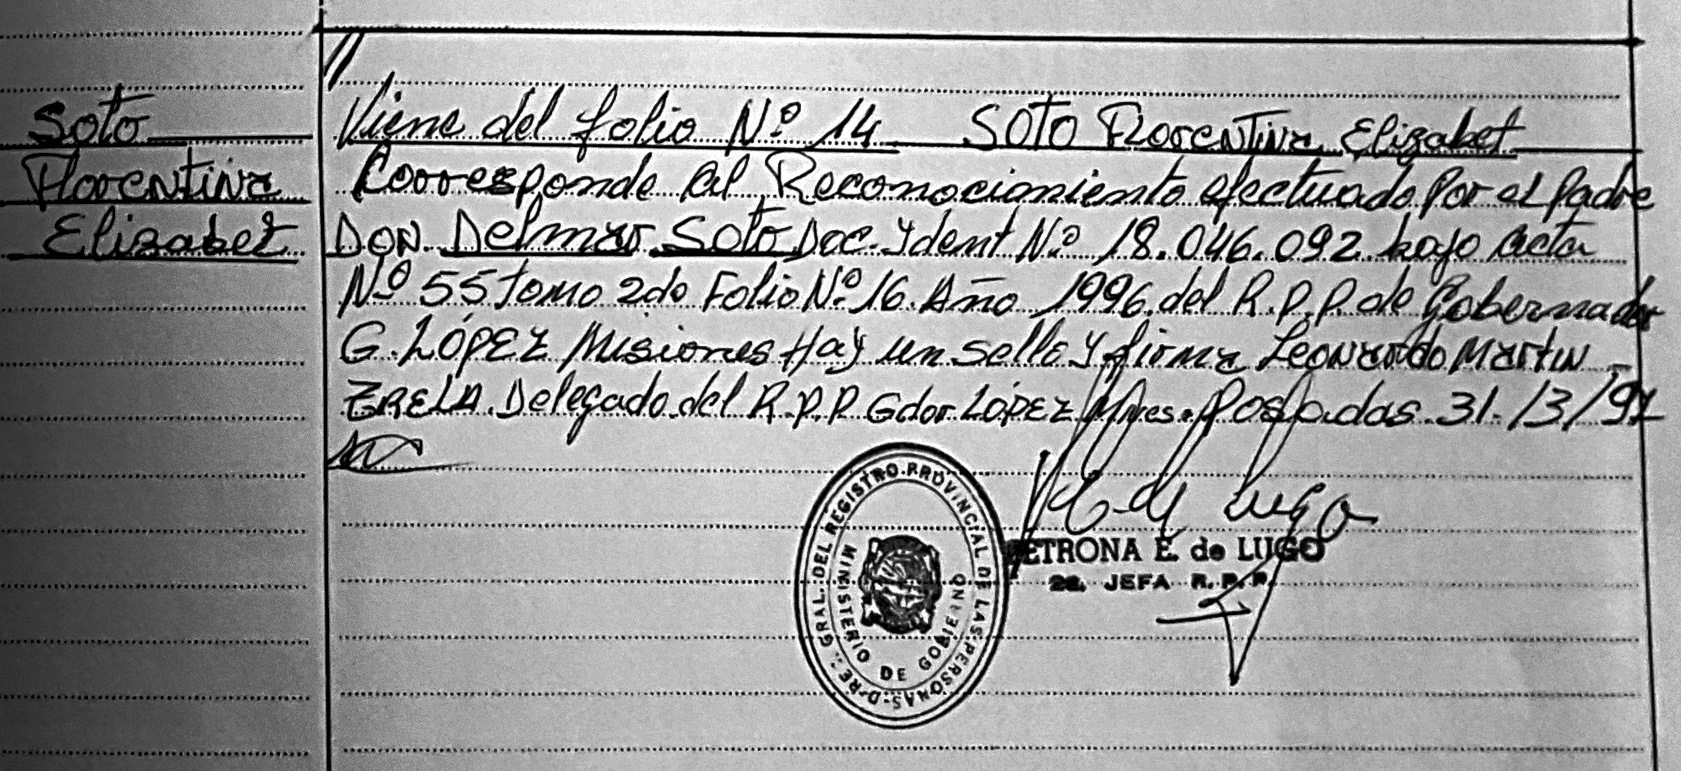 Soto
Florentina
Elizabet
//
Viene del folio Nº 14 SOTO Florentina Elizabet
Corresponde al Reconocimiento efectuado Por el Padre
DON Delmar Soto Doc. Ydent Nº 18.046.092 bajo acta
Nº 55 tomo 2do Folio Nº 16. Año 1996. del R.P.P. de Gobernador
G. LÓPEZ Misiones Hay un sello y firma Leonardo Martin
ZRELA. Delegado del R.P.P Gdor. LÓPEZ Mnes. Posadas. 31./3/97
PETRONA E. de LUGO
2a. JEFA R.P.P.
D-RE: GRAL. DEL REGISTRO PROVINCIAL DE LAS PERSONAS
MINISTERIO DE GOBIERNO